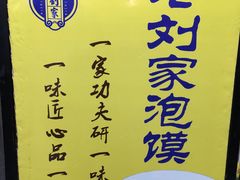 老刘家泡馍
一家功夫研一味
一味匠心品一
刘家